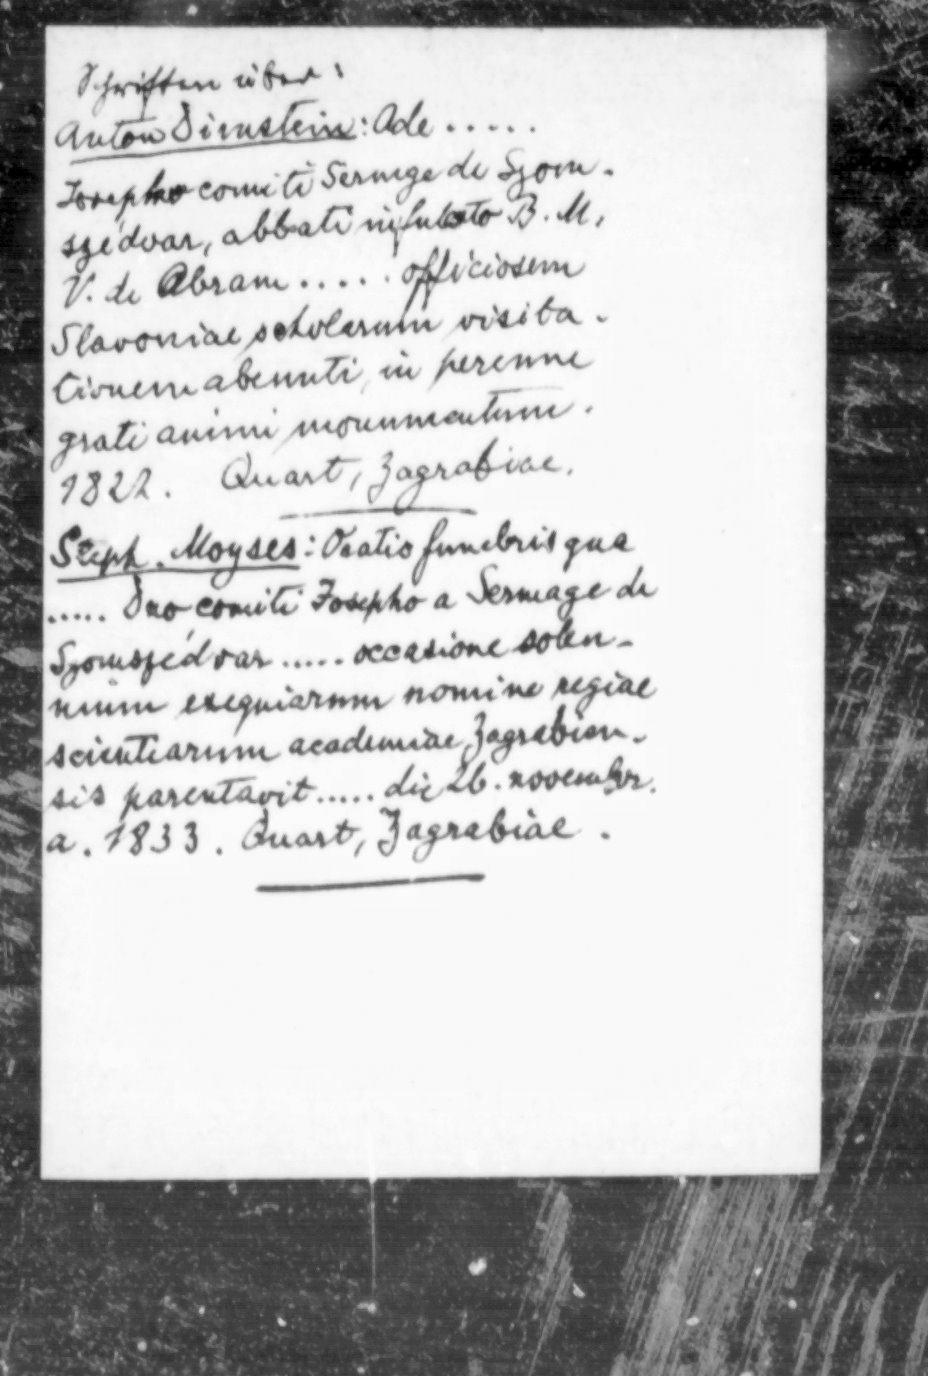 Schriften über:
Anton Dirnstein: Ode .....
Josepho comiti Sermage de Szom-
szédvar, abbati infulato B. M.
V. de Abram ..... officiosem
Slavoniae scholarum visita-
tionem abeunti, in perenne
grati animi monumentum.
1822. Quart, Zagrabiae.
Steph. Moyses: Oratio funebris qua
..... Dno comiti Josepho a Sermage de
Szomszédvar ..... occasione solen-
nium exequiarum nomine regiae
scientiarum academiae Zagrabien-
sis parentavit ..... die 26. novembr.
a. 1833. Quart, Zagrabiae.